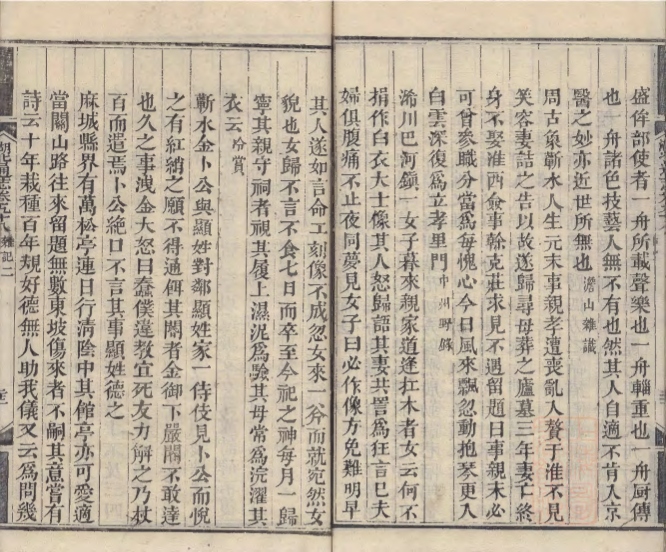 盛侔部使者一舟所載聲樂也一舟輜重也一舟厨傳
也一舟諸色技藝人無不有也然其人自適不肯入京
醫之妙亦近世所無也 澹山雜識
周古象蘄水人生元末事親孝遭喪亂人贅于淮不見
笑容妻詰之告以故遂歸尋母葬之廬墓三年妻亡終
身不娶淮西僉事幹克莊求見不遇留題曰事親未必
可曾參職分當爲每愧心今日風來飄忽動抱琴更入
白雲深復爲立孝里門 中州野錄
浠川巴河鎮一女子暮來親家道逢扛木者女云何不
捐作白衣大士像其人怒歸語其妻共詈爲狂言巳夫
婦俱腹痛不止夜同夢見女子曰必作像方免難明早
其人遂如言命工刻像不成忽女來一斧而就宛然女
貌也女歸不言不食七日而卒至今祀之神每月一歸
寧其親守祠者視其履上濕泥爲驗其母常爲浣濯其
衣云 哈賞
蘄水金卜公與顯姓對鄰顯姓家一侍伎見卜公而悅
之有紅綃之願不得通俾其閽者金御下嚴閽不敢達
也久之事洩金大怒曰蠢僕違教宜死友力解之乃杖
百而遣焉卜公絶口不言其事顯姓德之
麻城縣界有萬松亭連日行清陰中其館亭亦可愛適
當關山路往來留題無數東坡傷來者不嗣其意嘗有
詩云十年栽種百年規好德無人助我儀又云爲問幾
雜記二